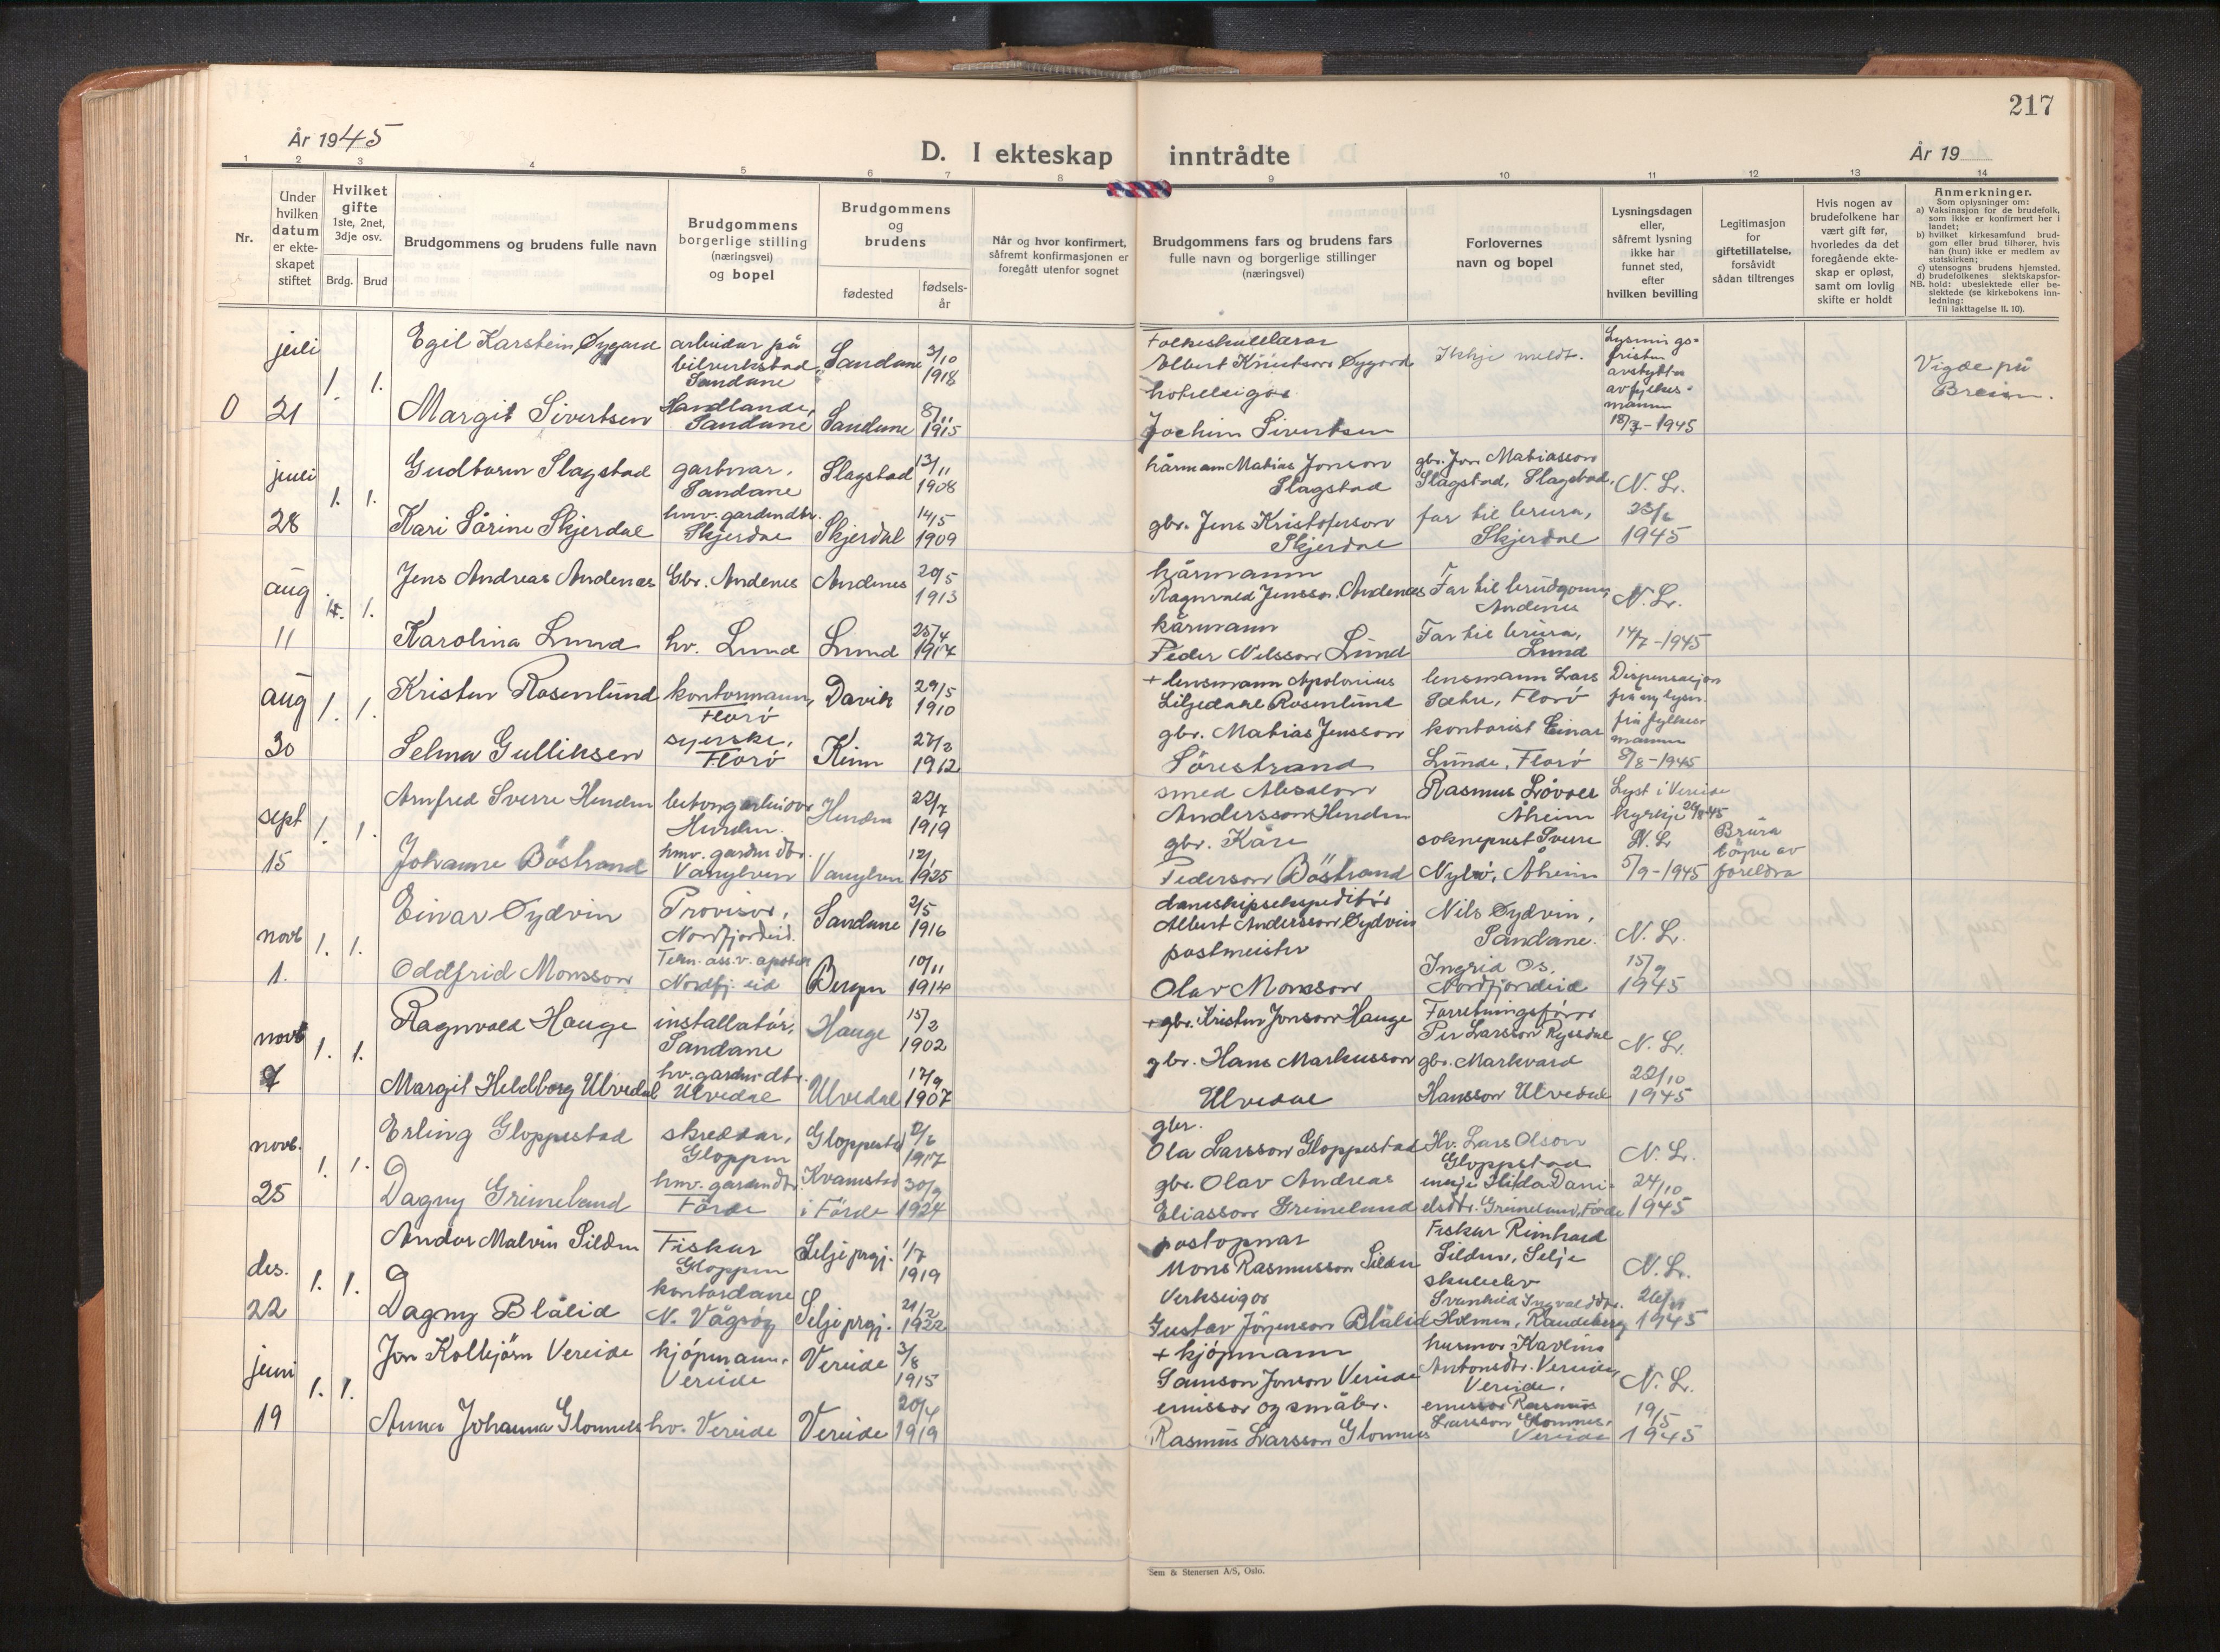 217
År 1945
D. I ekteskap inntrådte
År 19
1 2 3 4 5 6 7 8 9 10 11 12 13 14
Nr.
Under
hvilken
datum
er ekte-
skapet
stiftet
Hvilket
gifte
1ste, 2net,
3dje osv.
Brdg. Brud
Brudgommens og brudens fulle navn
Brudgommens
borgerlige stilling
(næringsvei)
og bopel
Brudgommens
og
brudens
fødested
fødsels-
år
Når og hvor konfirmert,
såfremt konfirmasjonen er
foregått utenfor sognet
Brudgommens fars og brudens fars
fulle navn og borgerlige stillinger
(næringsvei)
Forlovernes
navn og bopel
Lysningsdagen
eller,
såfremt lysning
ikke har
funnet sted,
efter
hvilken bevilling
Legitimasjon
for
giftetillatelse,
forsåvidt
sådan tiltrenges
Hvis nogen av
brudefolkene har
vært gift før,
hvorledes da det
foregående ekte-
skap er opløst,
samt om lovlig
skifte er holdt
Anmerkninger.
Som oplysninger om:
a) Vaksinasjon for de brudefolk,
som ikke er konfirmert her i
landet;
b) hvilket kirkesamfund brud-
gom eller brud tilhører, hvis
han (hun) ikke er medlem av
statskirken;
c) utensogns brudens hjemsted.
d) brudefolkenes slektskapsfor-
NB. hold: ubeslektede eller be-
slektede (se kirkebokens inn-
ledning:
Til iakttagelse II. 10).
juli
0 21
1. 1.
Egil Karstein Øygard
arbeidar på
bilverkstad,
Sandane
Sandane
3/10
1918
Folkeskulelærar
Albert Knutson Øygard
Ikkje meldt.
Lysnings-
fristen
avstytta
av fylkes-
mann
18/7-1945
Vigde på
Breim.
Margit Sivertsen
Handlande,
Sandane
Sandane
8/11
1915
hotelleigar
Jochim Sivertsen
juli
28
1. 1.
Gudtorm Slagstad
gartnar,
Sandane
Slagstad
13/11
1908
kårmann Matias Jonson
Slagstad
gbr. Jon Matiasson
Slagstad, Slagstad,
N. L.
23/6
1945
Kari Sörine Skjerdal
hmv. gardmdtr.
Skjerdal
Skjerdal
14/5
1909
gbr. Jens Kristoferson
Skjerdal
far til brura,
Skjerdal
aug
11
1. 1.
Jens Andreas Andenes
Gbr. Andenes
Andenes
20/5
1913
kårmann
Ragnvald Jensson Andenes
Far til brudgomen,
Andenes
N. L.
14/7-1945
Karolina Lund
hv. Lund
Lund
25/4
1914
kårmann
Peder Nilsson Lund
Far til brura,
Lund
aug
30
1. 1.
Kristen Rosenlund
kontormann,
Florö
Davik
29/5
1910
+ lensmann Apolonius
Liljedahl Rosenlund
lensmann Lars
Sæhre, Florö
Dispensasjon
frå ny lysn.
frå fylkes-
mann
8/8-1945
Selma Gulliksen
syerske,
Florö
Kinn
27/2
1912
gbr. Matias Jensson
Sörestrand
kontorist Einar
Lunde, Florö
sept
15
1. 1.
Arnfred Sverre Henden
betongarbeidar
Henden.
Henden
22/7
1919
smed Absalon
Andersson Henden
Rasmus Lövoll
Åheim
Lyst i Vereide
kyrkje 26/8 45
N. L.
5/9-1945
Brura
löyve av
foreldra
Johanne Böstrand
hmv. gardmdtr.
Vanylven
Vanylven
12/1
1925
gbr. Kåre
Pederson Böstrand
sokneprest Sverre
Nybö, Åheim
novb
1.
1. 1.
Einar Öydvin
Provisor,
Nordfjordeid.
Sandane
2/5
1916
dampskipsekspeditör
Albert Andersson Öydvin
Nils Öydvin,
Sandane.
N. L.
15/9
1945
Oddfrid Monsson
Tekn. ass. v. apotek
Nordfj. eid
Bergen
10/11
1914
postmeister
Olav Monsson
Ingrid Os.
Nordfjordeid
novb
7
1. 1.
Ragnvald Hauge
installatör,
Sandane
Hauge
15/2
1902
+ gbr. Kristen Jonson Hauge
Forretningsförar
Per Larsson Ryssdal
N. L.
22/10
1945
Margit Heldborg Ulvedal
hv. gardm.dtr.
Ulvedal
Ulvedal
17/9
1907
gbr. Hans Markusson
Ulvedal
gbr. Markvard
Hansson Ulvedal
novb.
25
1. 1.
Erling Gloppestad
skreddar,
Gloppen
Gloppestad
2/6
1917
gbr.
Ola Larsson Gloppestad
Hv. Lars Olson
Gloppestad
N. L.
24/10
1945
Dagny Grimeland
hmv. gardmdtr.
Förde
Kvamstad
i Förde
30/9
1924
gbr. Olav Andreas
Eliasson Grimeland
enkje Hilda Dani-
elsdtr. Grimeland, Förde
des.
22
1. 1.
Andor Malvin Silden
Fiskar
Gloppen
Selje prgj.
1/7
1919
postopnar
Mons Rasmusson Silden
Fiskar Reinhard
Silden, Selje
N. L.
26/11
1945
Dagny Blålid
kontordame
N. Vågsöy
Selje prgj.
21/2
1922
Verkseigar
Gustav Jörgenson Blålid
skuleelev
Svanhild Ingvaldsdtr.
Holmen, Raudeberg
juni
19
1. 1.
Jon Kolbjörn Vereide
kjöpmann,
Vereide
Vereide
3/8
1915
+ kjöpmann
Samson Jonson Vereide
husmor Karlina
Antonsdtr. Vereide,
Vereide.
N. L.
19/5
1945
Anna Johanna Glomnes
hv. Vereide
Vereide
20/4
1919
emissær og småbr.
Rasmus Larsson Glomnes
emissær Rasmus
Larsson Glomnes,
Vereide
Sem & Stenersen A/S, Oslo.